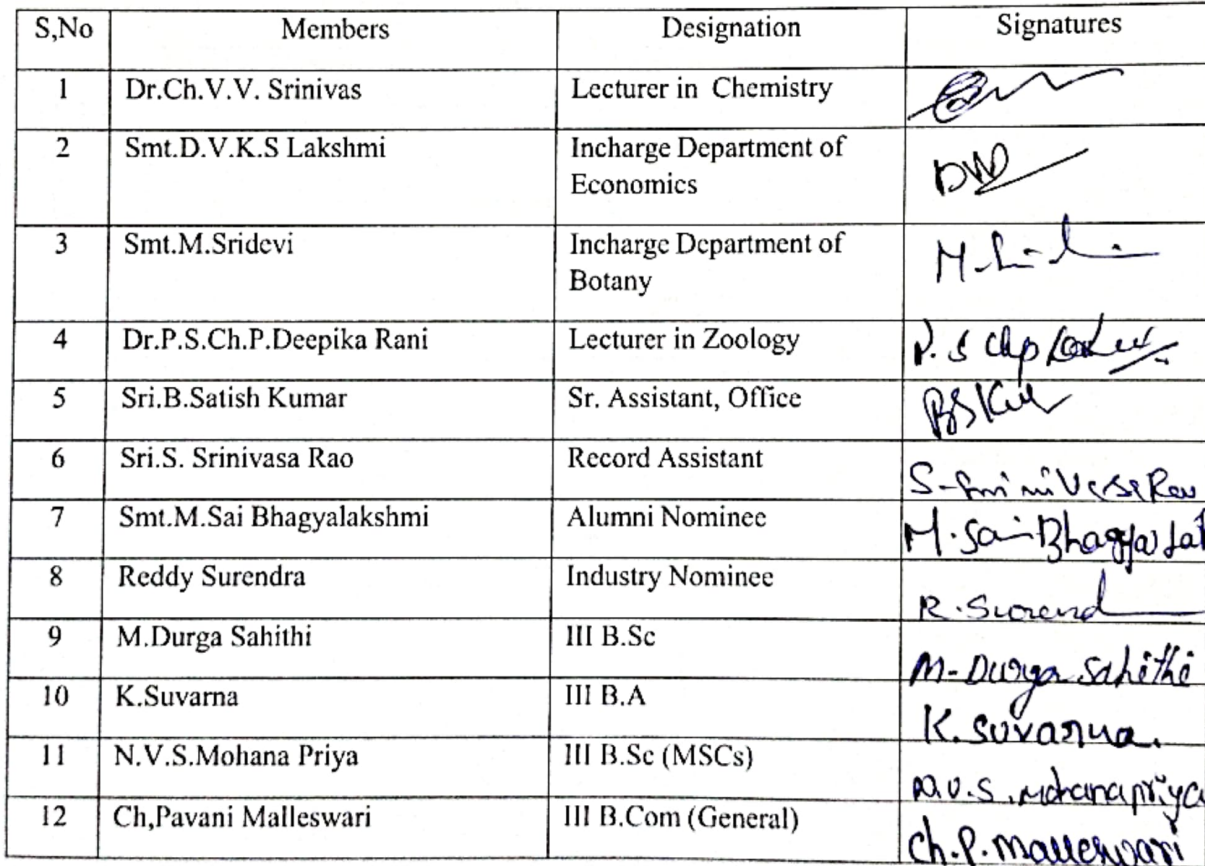 S,No Members Designation Signatures
1 Dr.Ch.V.V. Srinivas Lecturer in Chemistry
2 Smt.D.V.K.S Lakshmi Incharge Department of
Economics
3 Smt.M.Sridevi Incharge Department of
Botany
4 Dr.P.S.Ch.P.Deepika Rani Lecturer in Zoology P. S Chp
5 Sri.B.Satish Kumar Sr. Assistant, Office
6 Sri.S. Srinivasa Rao Record Assistant
7 Smt.M.Sai Bhagyalakshmi Alumni Nominee M. Sai Bhagya
8 Reddy Surendra Industry Nominee R.
9 M.Durga Sahithi III B.Sc M- Durga Sahithi
10 K.Suvarna III B.A K. Suvarna.
11 N.V.S.Mohana Priya III B.Sc (MSCs) N.V.S. Mohanapriya
12 Ch,Pavani Malleswari III B.Com (General) Ch.P. Malleswari